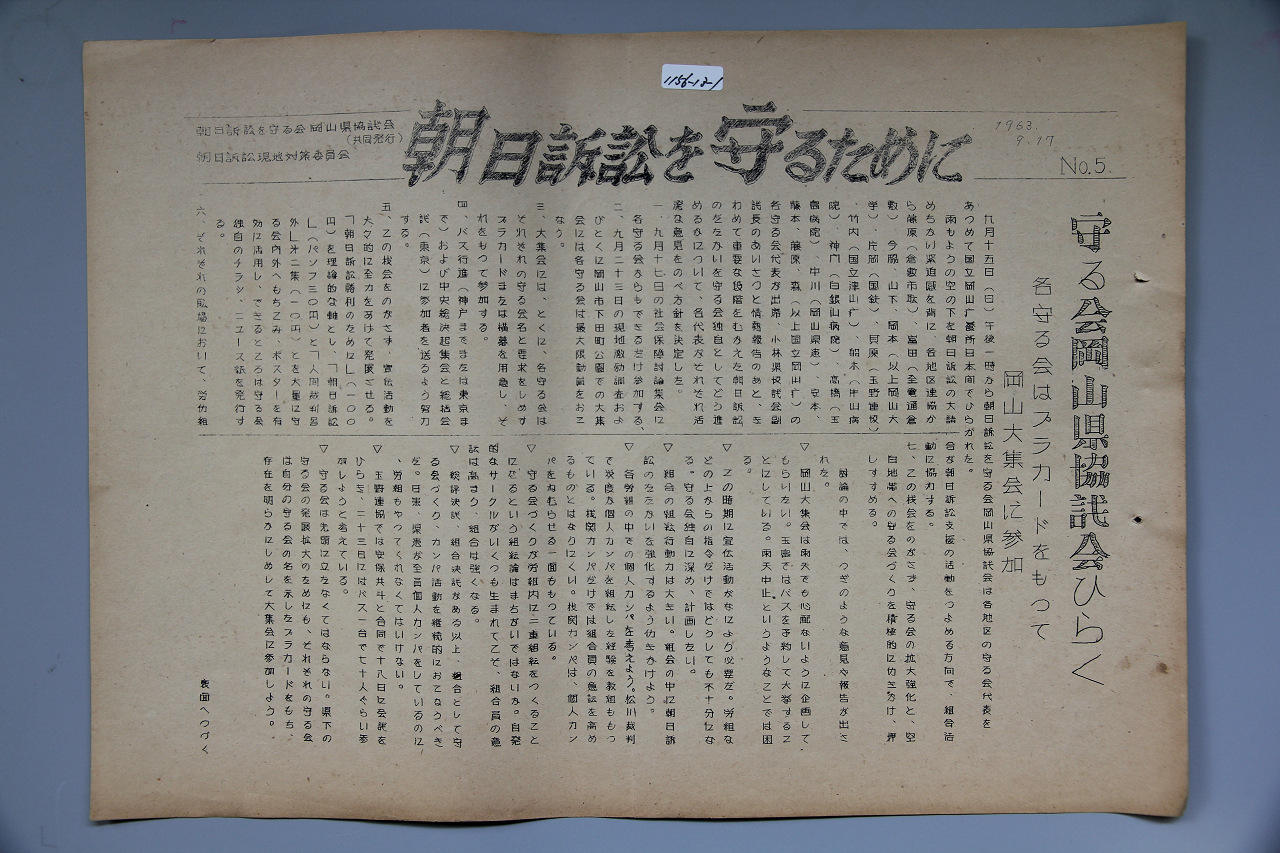 1156-12-1
朝日訴訟を守るために
1963.
9.17
No.5.
朝日訴訟を守る会岡山県協議会
(共同発行)
朝日訴訟現地対策委員会
守る会岡山県協議会ひらく
各守る会はプラカードをもって
岡山大集会に参加
九月十五日(日)午後一時から朝日訴訟を守る会岡山県協議会は各地区の守る会代表を
あつめて国立岡山療養所日本間でひらかれた。
雨もようの空の下を朝日訴訟の大詰
めちかい緊迫感を背に、各地区連協か
ら藤原(倉敷市職)、富田(全電通倉
敷)今脇、山下、岡本(以上岡山大
学)、片岡(国鉄)、貝原(玉野連協)
、竹内(国立津山療)、朝本(津山病
院)、神門(白銀山病院)、高橋(玉
島病院)、中川(岡山県患)、安本、
藤本、藤原、森(以上国立岡山療)の
各守る会代表が出席、小林県協議会副
議長のあいさつと情報報告のあと、き
わめて重要な段階をむかえた朝日訴訟
のたたかいを守る会独自としてどう進
めるかについて、各代表がそれぞれ活
溌な意見をのべ方針を決定した。
一、九月十七日の社会保障討論集会に
各守る会からもできるだけ参加する。
二、九月二十三日の現地激励調査およ
びとくに岡山市下田町公園での大集
会には各守る会は最大限動員をおこ
なう。
三、大集会には、とくに、各守る会は
それぞれの守る会名と要求をしめす
プラカードまたは横幕を用意し、そ
れをもって参加する。
四、バス行進(神戸までまたは東京ま
で)および中央総決起集会と総括会
議(東京)に参加者を送るよう努力
する。
五、この機会をのがさず、宣伝活動を
大々的に全力をあげて発展させる。
「朝日訴訟勝利のために」(一〇〇
円)を理論的な軸とし、「朝日訴訟
」(パンフ三〇円)と「人間裁判号
外」オ二集(一〇円)とを大量に守
る会内外へもちこみ、ポスターを有
効に活用し、できるところは守る会
独自のチラシ、ニュース紙を発行す
る。
六、それぞれの職場において、労働組
合な朝日訴訟支援の活動をつよめる方向で、組合活
動に協力する。
七、この機会をのがさず、守る会の拡大強化と、空
白地帯への守る会づくりを積極的に働きかけ、押
しすすめる。
討論の中では、つぎのような意見や報告が出さ
れた。
▽ 岡山大集会は雨天でも心配ないように企画して
もらいたい。玉島ではバスを予約して大挙するこ
とにしている。雨天中止というようなことでは困
る。
▽ この時期に宣伝活動がなにより必要だ。労組な
どの上からの指令だけではどうしても不十分にな
る。守る会独自に深め、計画したい。
▽ 組合の組織行動力は大きい。組合の中に朝日訴
訟のたたかいを強化するよう働きかけよう。
▽ 各労組の中での個人カンパを考えよう。松川裁判
で炭度か個人カンパを組織した経験を教組ももっ
ている。機関カンパだけでは組合員の意識を高め
るものとはなりにくい。機関カンパは、個人カン
パをねむらせる一面ももっている。
▽ 守る会づくりが労組内に二重組織をつくること
になるという組織論はまちがいではないか。自発
的なサークルがいくつも生まれてこそ、組合員の意
識は高まり、組合は強くなる。
▽ 総評決議、組合決議がある以上、組合として守
る会づくり、カンパ活動を継続的におこなうべき
だ。日患、県患が全員個人カンパをしているのに
労組もやってくれなくてはいけない。
▽ 玉野連協では安保共斗と合同で十八日に会議を
ひらき、二十三日にはバス一台で七十人ぐらい参
加しようと考えている。
▽ 守る会は先頭に立たなくてはならない。県下の
守る会の発展拡大のためにも、それぞれの守る会
は自分の守る会の名を示したプラカードをもち、
存在を明らかにしめして大集会に参加しよう。
裏面へつづく